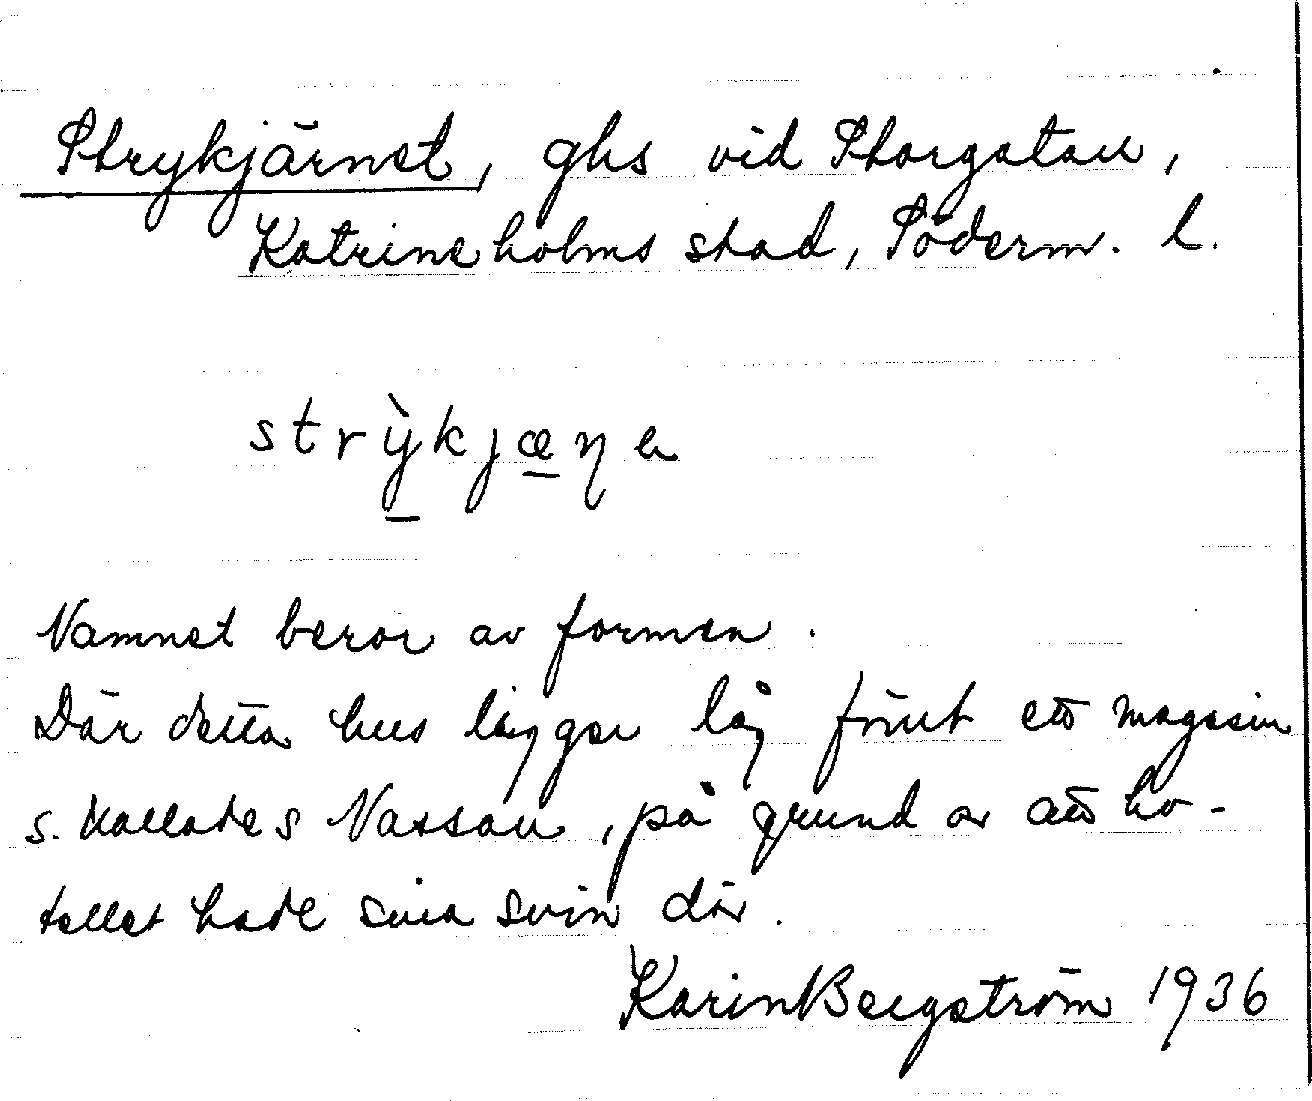 Strykjärnet, ghs vid Storgatan,
Katrineholms stad, Söderm. l.
strỳkjæɳa
Namnet beror av formen.
Där detta hus ligger låg förut ett magasin
s. kallades Nassau, på grund av att ho-
tellet hade sina svin där.
Karin Bergström 1936